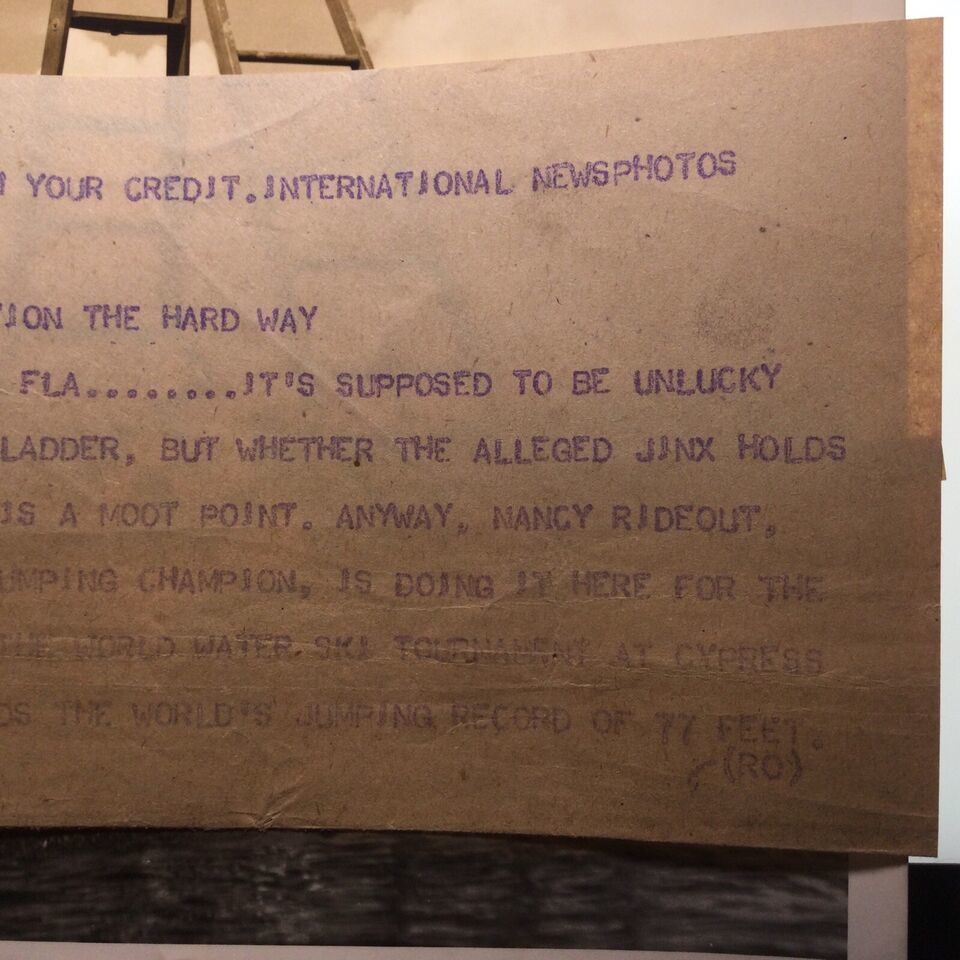 YOUR CREDIT.INTERNATIONAL NEWSPHOTOS
TION THE HARD WAY
FLA........IT'S SUPPOSED TO BE UNLUCKY
LADDER, BUT WHETHER THE ALLEGED JINX HOLDS
IS A MOOT POINT. ANYWAY, NANCY RIDEOUT,
UMPING CHAMPION, IS DOING IT HERE FOR THE
THE WORLD WATER SKI TOURNAMENT AT CYPRESS
DS THE WORLD'S JUMPING RECORD OF 77 FEET.
(RO)